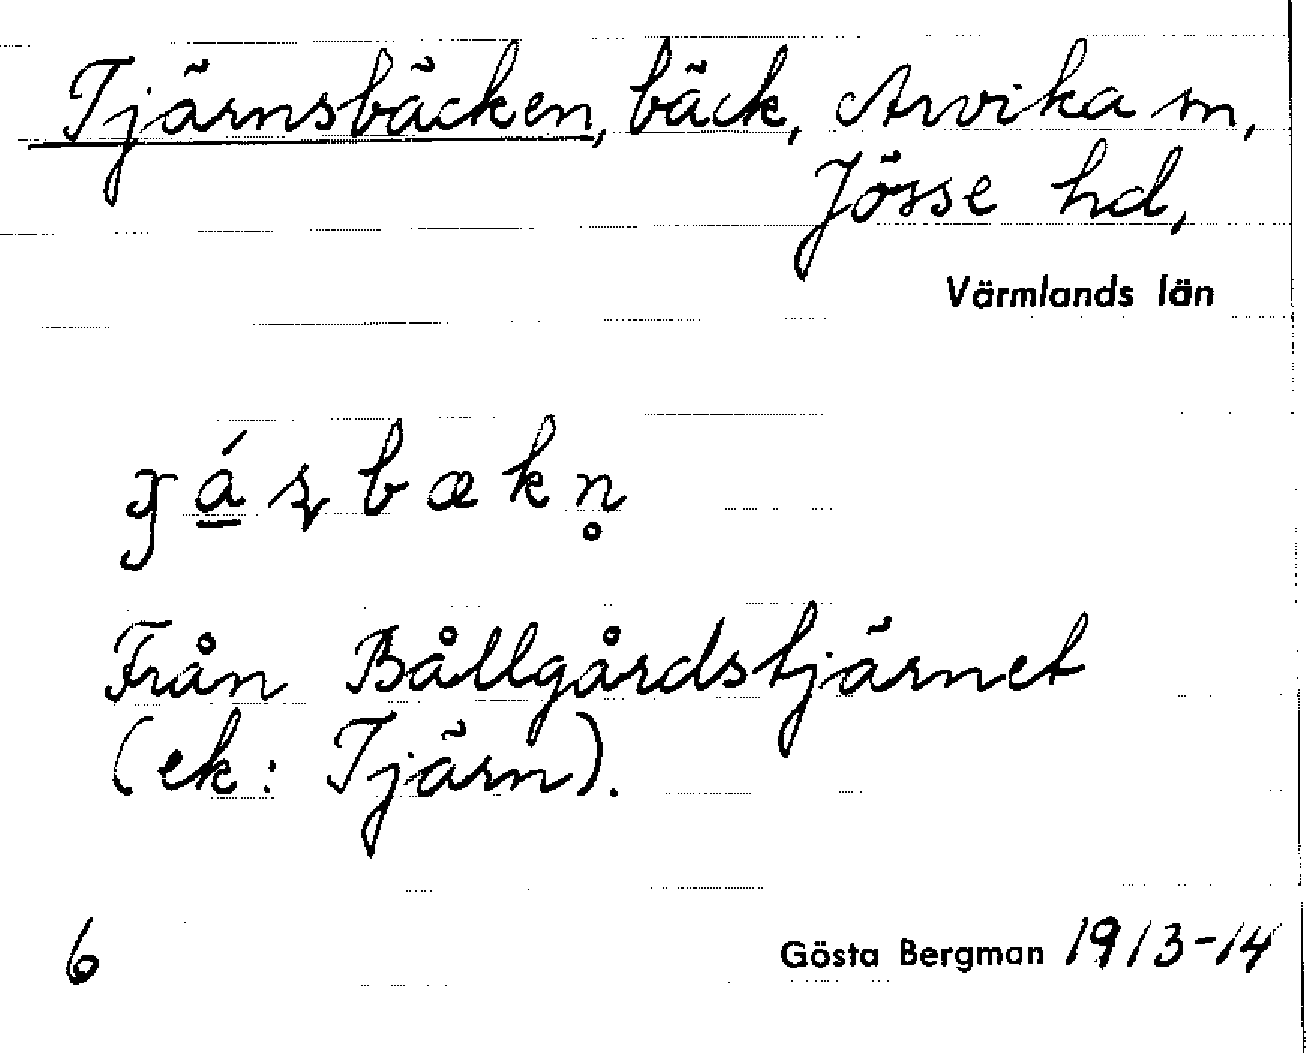 Tjärnsbäcken, bäck, Arvika sn,
Jösse hd,
Värmlands län
Från Bållgårdstjärnet
(ek: Tjärn).
6 Gösta Bergman 1913-14